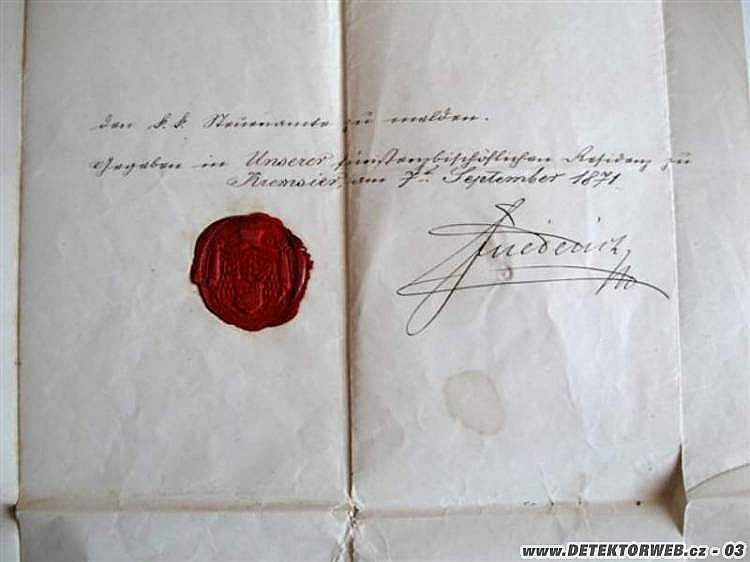 den k. k. Steueramte zu melden.
Gegeben in Unserer fürsterzbischöflichen Residenz zu
Kremsier, am 7ten September 1871
Friederich
www.DETEKTORWEB.cz - 03